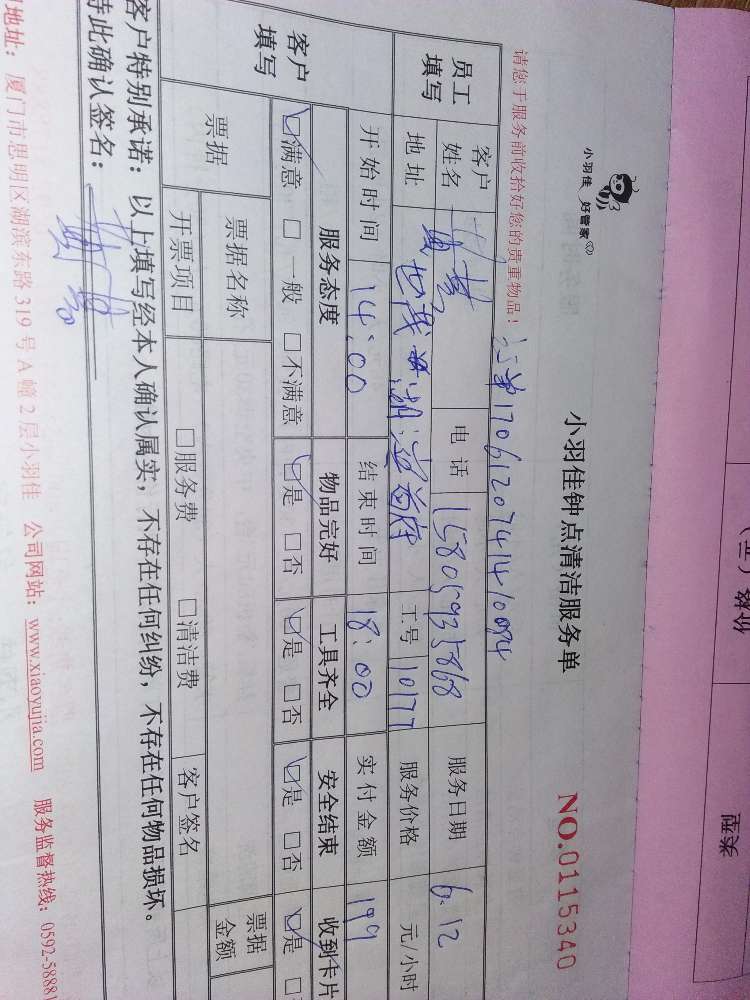 小羽佳 好管家
小羽佳钟点清洁服务单
NO.0115340
请您于服务前收拾好您的贵重物品!
1706120741410094
员工填写
客户姓名 电话 15805935868 服务日期 6.12
地址 工号 10177 服务价格 元/小时
客户填写
开始时间 14:00 结束时间 18:00 实付金额 199
服务态度 物品完好 工具齐全 安全结束 收到卡片
☑满意 □一般 □不满意 ☑是 □否 ☑是 □否 ☑是 □否 ☑是 □
票据
票据名称 票据金额
开票项目 □服务费 □清洁费 客户签名
客户特别承诺:以上填写经本人确认属实,不存在任何纠纷,不存在任何物品损坏。
特此确认签名:
地址:厦门市思明区湖滨东路319号A幢2层小羽佳 公司网站:www.xiaoyujia.com 服务监督热线:0592-5888